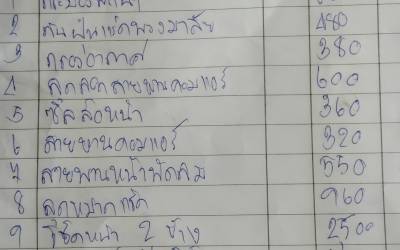 2 กันฝุ่นแร็คพวงมาลัย 480
3 กรองอากาศ 380
4 ลูกลอกสายพานคอมแอร์ 600
5 ซีลล้อหน้า 360
6 สายพานคอมแอร์ 320
7 สายพานหน้าพัดลม 550
8 ลูกหมากแร็ค 960
9 โช๊คหน้า 2 ข้าง 2500